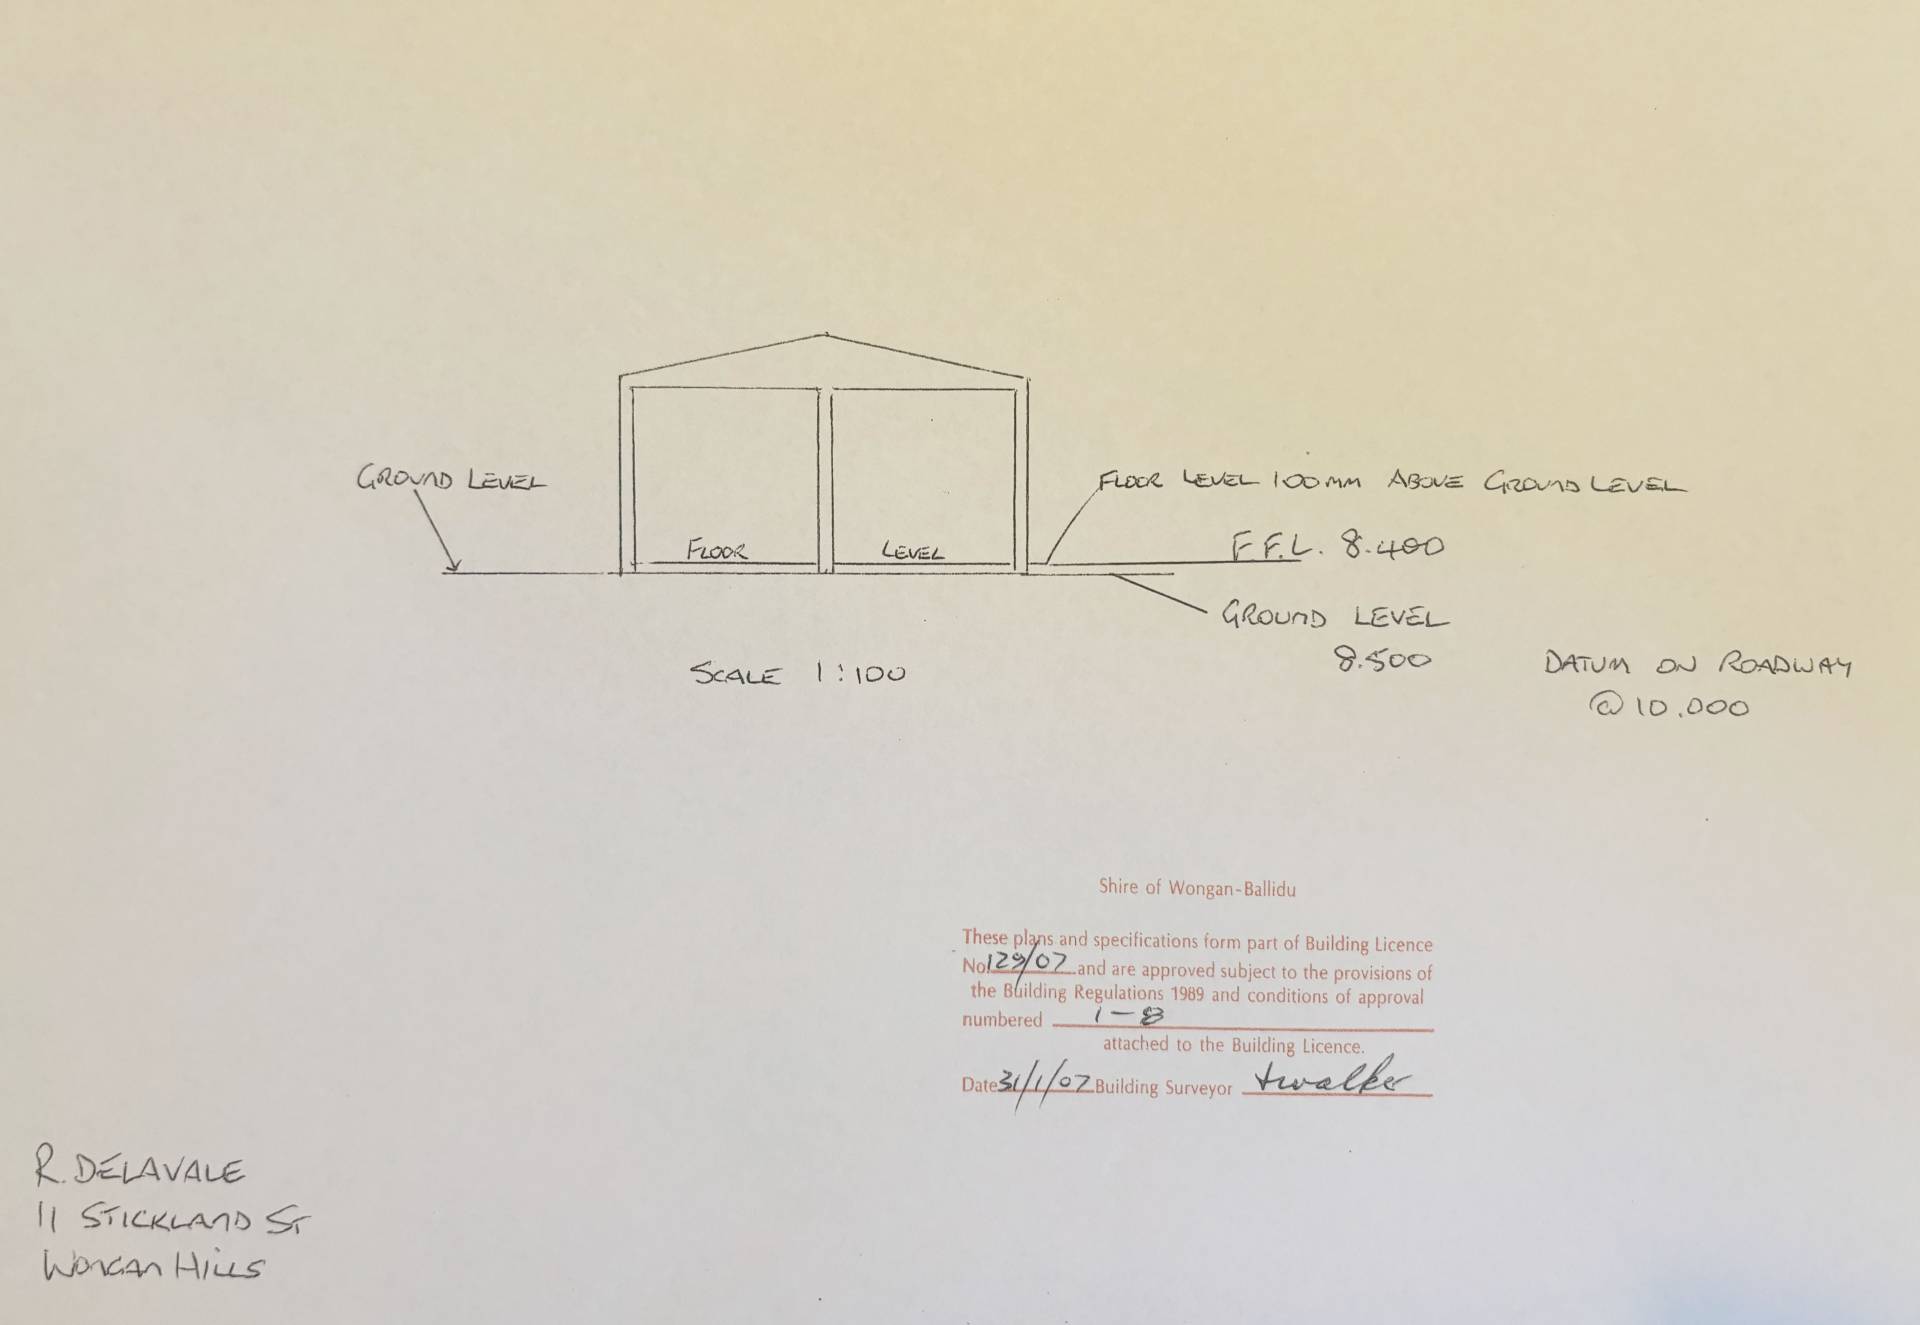 GROUND LEVEL
FLOOR LEVEL 100MM ABOVE GROUND LEVEL
FLOOR
LEVEL
F F.L. 8.400
GROUND LEVEL
8.500
SCALE 1:100
DATUM ON ROADWAY
@ 10.000
Shire of Wongan-Ballidu
These plans and specifications form part of Building Licence
No 129/07 and are approved subject to the provisions of
the Building Regulations 1989 and conditions of approval
numbered 1-8
attached to the Building Licence.
Date 31/1/07 Building Surveyor twalker
R. DELAVALE
11 STICKLAND ST
WONGAN HILLS